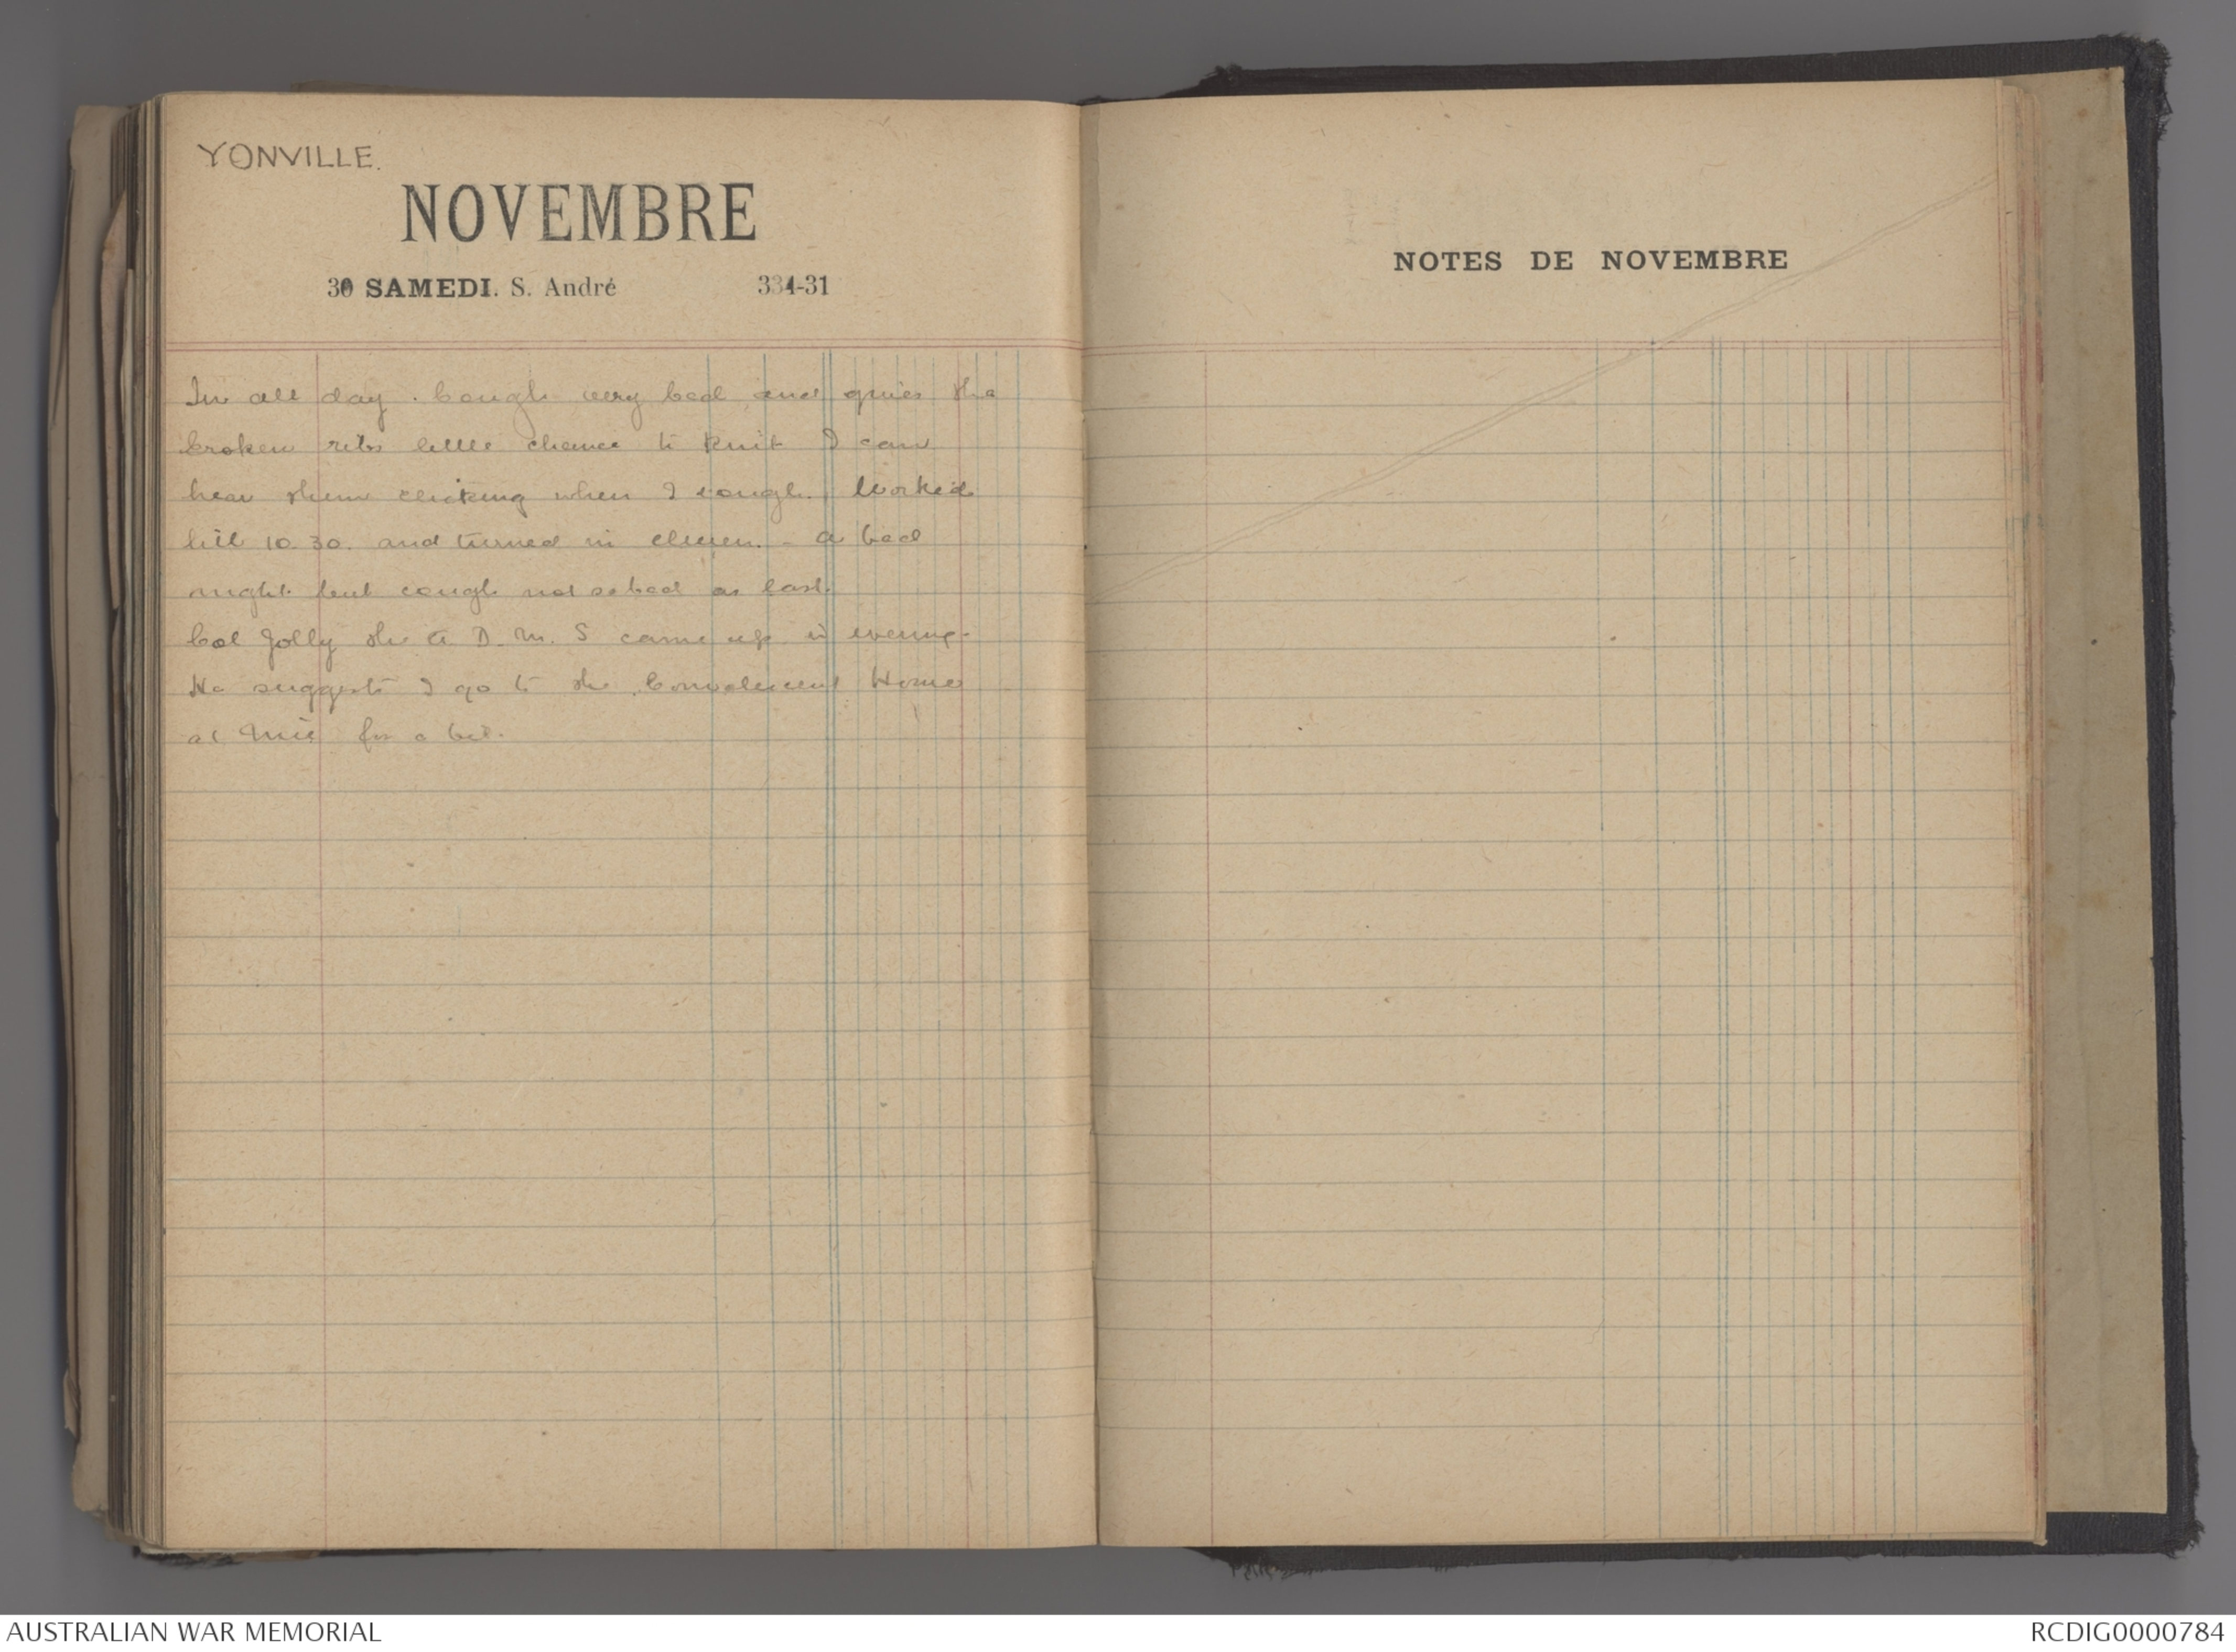 YONVILLE.
NOVEMBRE
30 SAMEDI. S. André 334-31
In all day. Cough very bad and gives the
broken ribs little chance to knit I can
hear them clicking when I cough. Worked
till 10.30. and turned in eleven. - A bad
night but cough not so bad as last.
Col Jolly the A D. M. S came up in evening.
He suggests I go to the Convalescent Home
at for a bit.
NOTES DE NOVEMBRE
AUSTRALIAN WAR MEMORIAL
RCDIG0000784